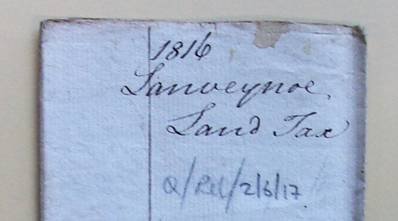 1816
Lanveynoe.
Land Tax
Q/REL/2/6/17